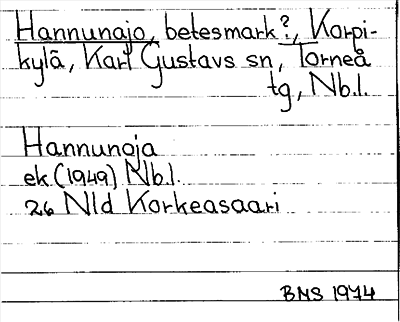 Hannunaja, betesmark?, Karpi-
kylä, Karl Gustavs sn, Torneå
tg, Nb.l.
Hannunaja
ek (1949) Nb.l.
26 Nld Korkeasaari
BMS 1974